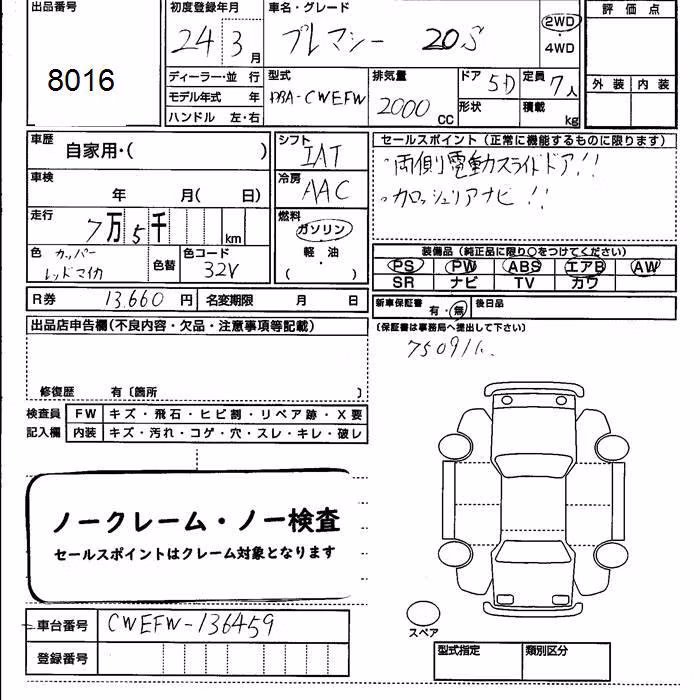 出品番号
8016
初度登録年月
24 3月
車名・グレード
プレマシー 20S
2WD
・
4WD
評価点
外装 内装
ディーラー・並行
モデル年式 年
ハンドル 左・右
型式
DBA-CWEFW
排気量
2000 CC
ドア 5D
形状
定員 7人
積載 kg
車歴
自家用・( )
車検
年 月( 日)
走行
7万5千 km
色 カッパーレッドマイカ
色替
色コード
32V
シフト
IAT
冷房
AAC
燃料
ガソリン
・
軽・油
・
( )
セールスポイント(正常に機能するものに限ります)
・両側電動スライドドア!!
・カロッツェリアナビ!!
装備品(純正品に限り○をつけてください)
PS PW ABS エアB AW
SR ナビ TV カワ
R券 13,660円 名変期限 月 日
新車保証書 有・無 後日品
(保証書は事務局へ提出して下さい)
出品店申告欄(不良内容・欠品・注意事項等記載)
修復歴 有〔箇所 〕
検査員記入欄
FW キズ・飛石・ヒビ割・リペア跡・X要
内装 キズ・汚れ・コゲ・穴・スレ・キレ・破レ
ノークレーム・ノー検査
セールスポイントはクレーム対象となります
車台番号 CWEFW-136459
登録番号
スペア
型式指定 類別区分